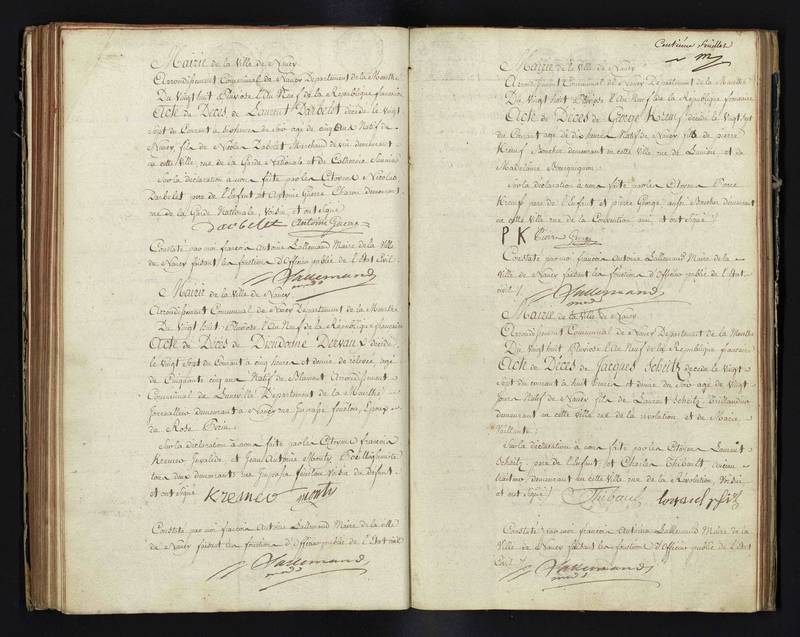 Mairie de la Ville de Nancy
Arrondissement Communal de Nancy Departement de la Meurthe
Du Vingt huit Pluviose l'An Neuf de la République francaise
Acte de Décès de Laurent Darbelet décédé le Vingt
Sept du Courant à
du soir agé de cinq ans Natif de
Nancy, fils de Nicolas Darbelet Marchand de vin demeurant
en cette Ville, rue de la Garde Nationale et de Catherine
Sur la déclaration à nous faite par les Citoyens Nicolas
Darbelet pere de l'Enfant et Antoine George Charon demeurant
rue de la Garde Nationale, Voisin, et ont signé
Darbelet Antoine George
Constaté par moi françois Antoine Lallemand Maire de la Ville
de Nancy faisant les fonctions d'Officier public de l'Etat Civil
Lallemand
Mairie de la Ville de Nancy
Arrondissement Communal de Nancy Departement de la Meurthe
Du Vingt huit Pluviose l'An Neuf de la République francaise
Acte de Décès de Dieudonné Dervaux décédé
le Vingt Sept du Courant à cinq heures et demie de relevée agé
de Cinquante cinq ans Natif de Blamont Arrondissement
Communal de Luneville Departement de la Meurthe
Journallier demeurant à Nancy rue Impasse Epoux
de Rose
Sur la déclaration à nous faite par les Citoyens françois
Kresner Invalide et Jean Antoine Montz
tous deux demeurants rue Impasse voisin du Defunt
et ont signé Kresner Montz
Constaté par moi françois Antoine Lallemand Maire de la Ville
de Nancy faisant les fonctions d'Officier public de l'Etat civil
Lallemand
Centième feuillet
Mairie de la Ville de Nancy
Arrondissement Communal de Nancy Departement de la Meurthe
Du Vingt huit Pluviose l'An Neuf de la République francaise
Acte de Décès de George Kreuf décédé le Vingt Sept
du Courant agé de Natif de Nancy fils de pierre
Kreuf Boucher demeurant en cette Ville rue de et de
Madelaine Bourguignon
Sur la déclaration à nous faite par les Citoyens Pierre
Kreuf pere de l'Enfant et pierre George aussi Boucher demeurant
en cette Ville rue de la Convention ami, et ont signé
P K Pierre George
Constaté par moi françois Antoine Lallemand Maire de la
Ville de Nancy faisant les fonctions d'Officier public de l'Etat
civil
Lallemand
Mairie de la Ville de Nancy
Arrondissement Communal de Nancy Departement de la Meurthe
Du Vingt huit Pluviose l'An Neuf de la République francaise
Acte de Décès de Jacques Scheitz décédé le Vingt
Sept du courant à huit heures et demie du Soir agé de Vingt
jours Natif de Nancy fils de Laurent Scheitz
demeurant en cette Ville rue de la révolution et de Marie
Vaillante
Sur la déclaration à nous faite par les Citoyens Laurent
Scheitz pere de l'Enfant et Charles Thibault
demeurant en cette Ville rue de la Révolution Voisin
et ont signé Thibault
Constaté par moi françois Antoine Lallemand Maire de la
Ville de Nancy faisant les fonctions d'Officier public de l'Etat
Civil
Lallemand